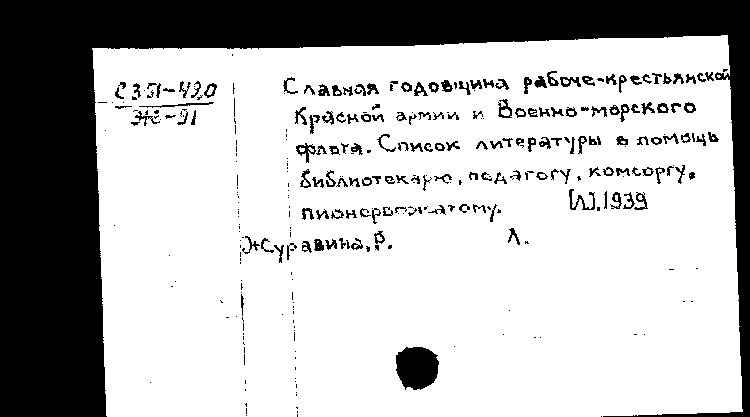 С351-490
Ж-91
Славная годовщина рабоче-крестьянской
Красной армии и Военно-морского
флота. Список литературы в помощь
библиотекарю, педагогу, комсоргу,
пионервожатому. [Л], 1939
Журавина, Р. Л.